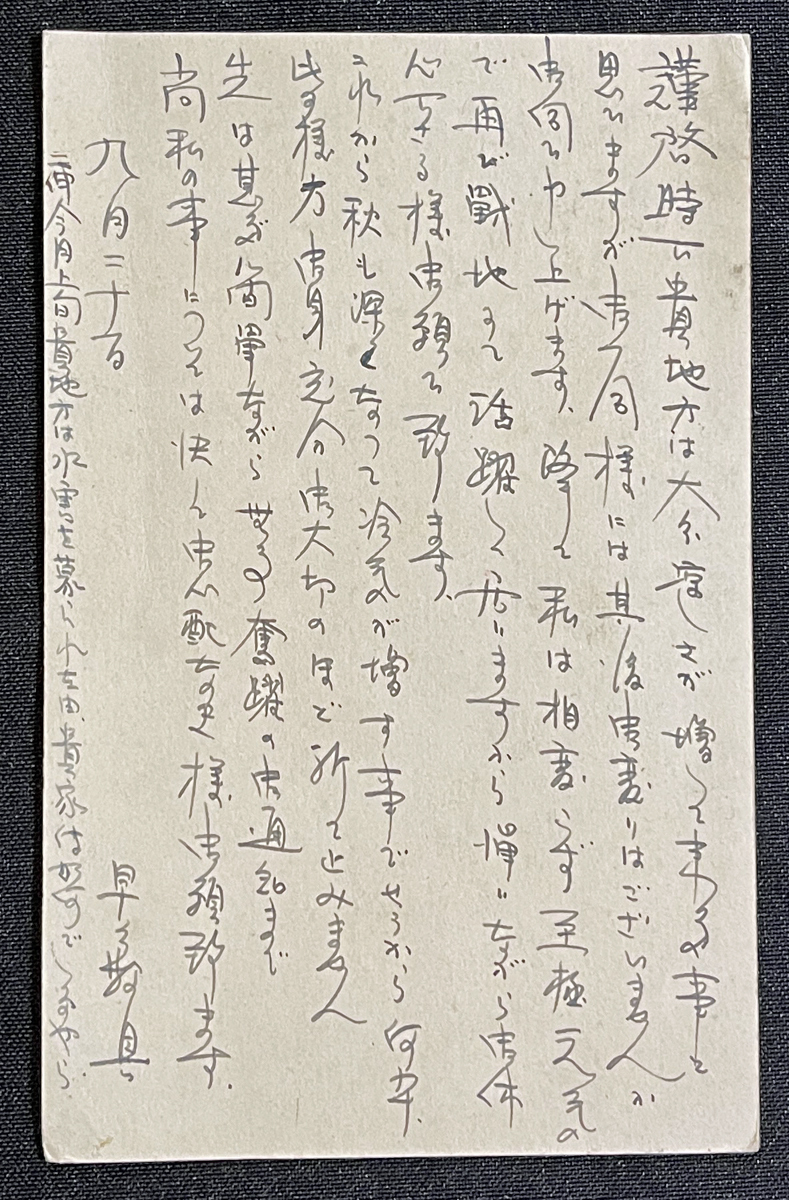 謹啓時下貴地方は大分寒さが増して来る事と
思ひますが御一同様には其後御変りはございませんか
御伺ひ申し上げます、降て私は相変らず至極元気の
で再び戦地にて活躍して居りますから憚りながら御休
心下さる様御願ひ致します、
これから秋も深くなつて冷気が増す事でせうから何卒、
皆様方御身充分御大切のほど祈て止みません
先は甚だ簡単ながら無事奮躍の御通知まで
尚私の事については決して御心配なき様御願致ます、
九月二十日
早々 敬具
二伸今月上旬貴地方は水害を蒙られた由、貴家は如何でしたやら、